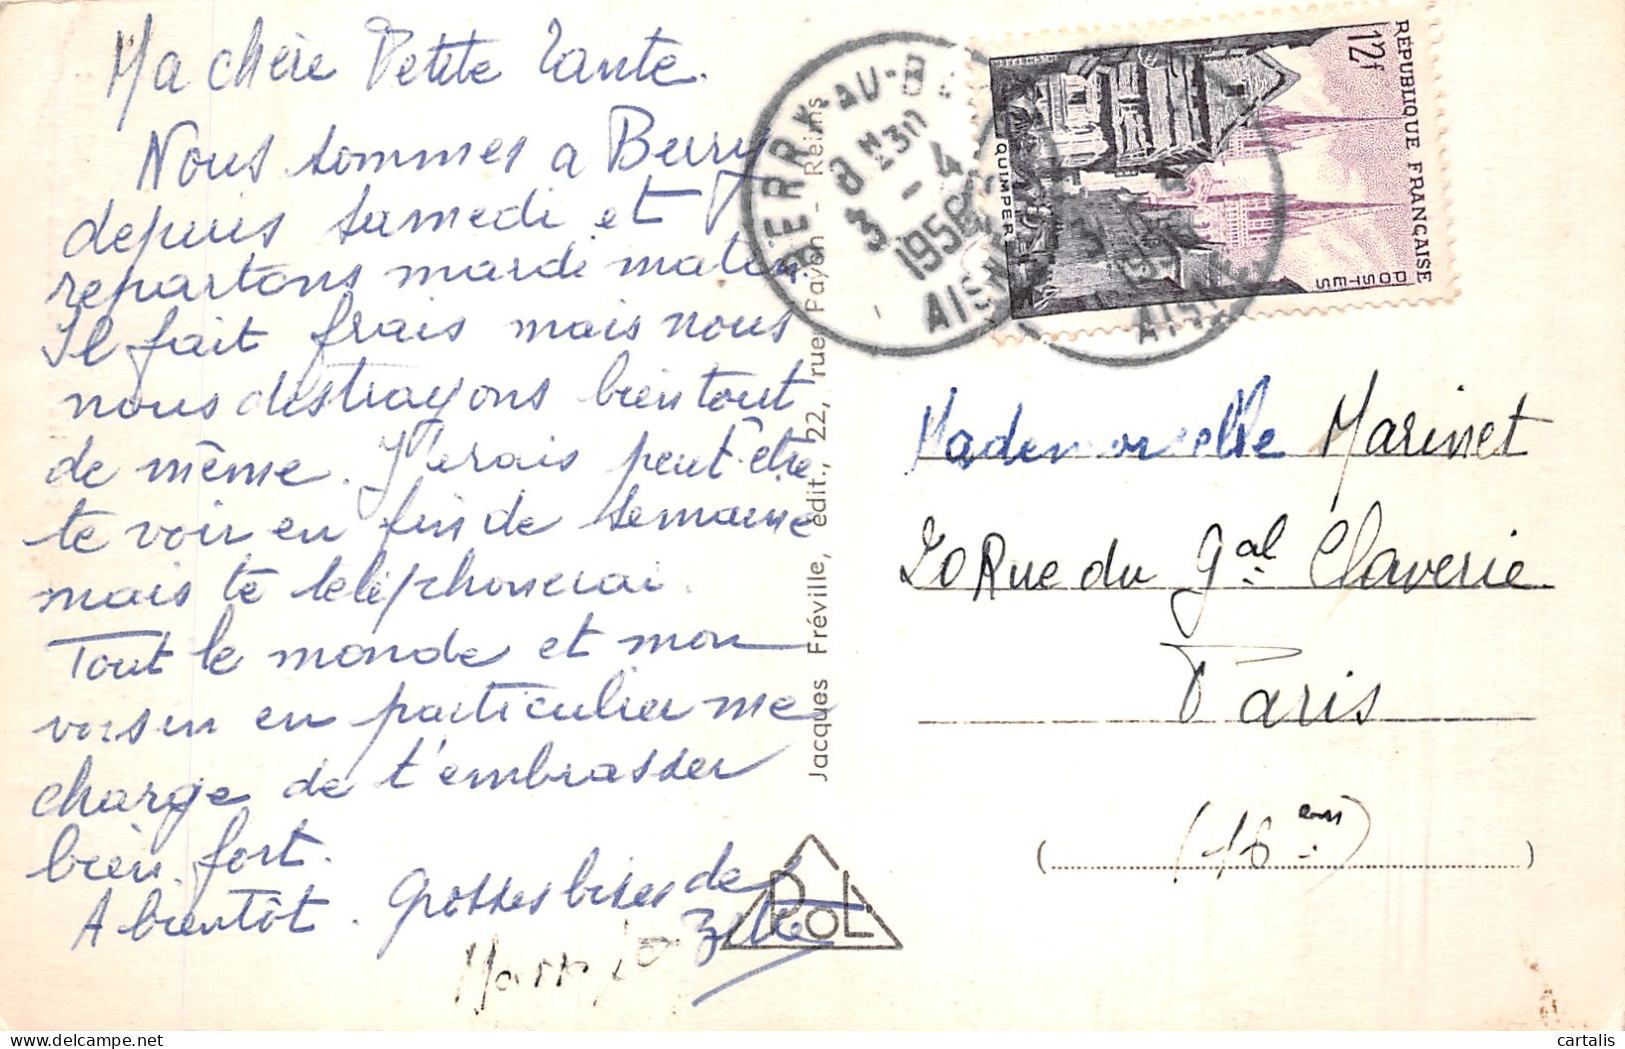 Ma chère Petite Tante.
Nous sommes a Berry
depuis samedi et
repartons mardi matin.
Il fait frais mais nous
nous distrayons bien tout
de même. J'irais peut-être
te voir en fin de semaine
mais te téléphonerai.
Tout le monde et mon
en particulier me
charge de t'embrasser
bien fort.
A bientôt. Grosses bises de
Jacques Fréville, édit., 22, rue Payen - Reims
RoL
BERRY-AU-B
8 H 30
3 - 4
1956
AISNE
RÉPUBLIQUE FRANÇAISE
12f
POSTES
QUIMPER
Mademoiselle Marinet
20 Rue du Gal Claverie
Paris
(16 em)
cartalis